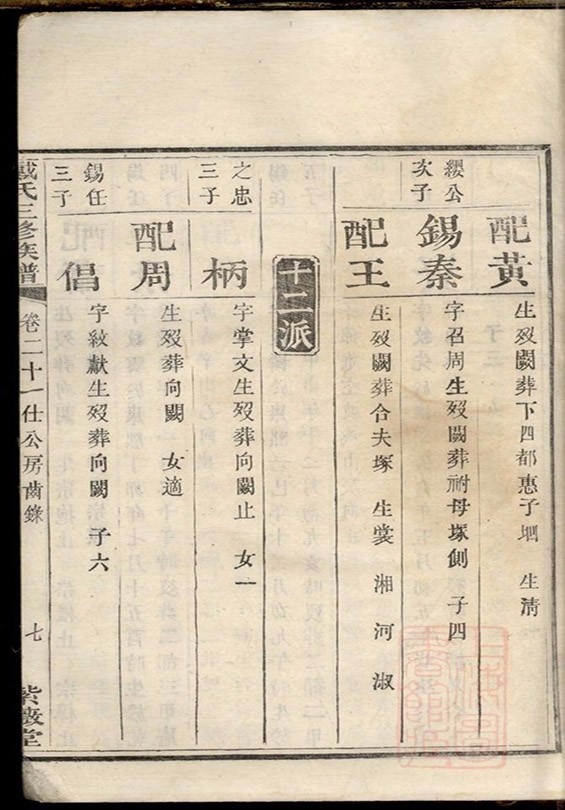 配黃
生歿闕葬下四都惠子垇 生淸
纓公次子
錫秦
字召周生歿闕葬祔母塚側 子四
配王
生歿闕葬合夫塚 生裳 湘 河 淑
十二派
之忠三子
柄
字掌文生歿葬向闕止 女一
配周
生歿葬向闕 女適
錫任三子
倡
字紋獻生歿葬向闕 子六
戴氏三修族譜
卷二十一仕公房齒錄
七
紫薇堂